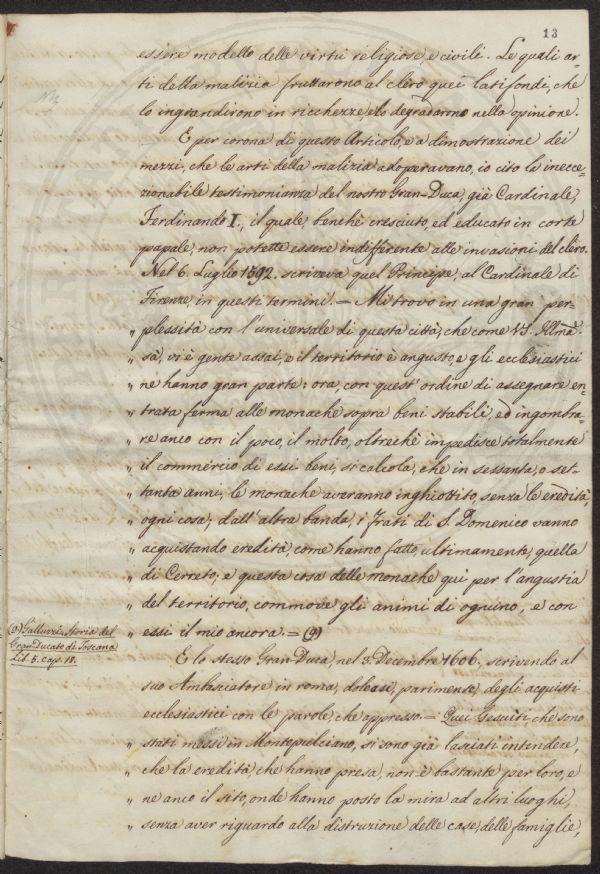 13
essere modello delle virtù religiose e civili. Le quali ar-
ti della malizia fruttarono al clero quei latifondi, che
lo ingrandirono in ricchezze, e lo degradarno nella opinione.
E per corona di questo Articolo, e a dimostrazione dei
mezzi, che le arti della malizia adoperavano, io cito la inecce-
zionabile testimonianza del nostro Gran-Duca, già Cardinale,
Ferdinando I., il quale, benché cresciuto, ed educato in corte
papale, non potette essere indifferente alle invasioni del clero.
Nel 6. Luglio 1592. scriveva quel Principe, al Cardinale di
Firenze in questi termini. = Mi trovo in una gran per-
„ plessità con l'universale di questa città, che come V.S. Illma.
„ sà, vi è gente assai, e il territorio è angusto, e gli ecclesiastici
„ ne hanno gran parte: ora, con quest'ordine di assegnare en-
„ trata ferma alle monache sopra beni stabili, ed ingombra-
„ re anco con il poco, il molto, oltreché impedisce totalmente
„ il commercio di essi beni, si calcola, che in sessanta, o set-
„ tanta anni, le monache averanno inghiottito, senza le eredità,
„ ogni cosa; dall'altra banda, i frati di S. Domenico vanno
„ acquistando eredità, come hanno fatto, ultimamente, quella
„ di Cerreto; e questa cosa delle monache qui per l'angustia
„ del territorio, commove gli animi di ognuno, e con
„ essi il mio ancora. = (9)
(9) Galluzzi Storia del
Gran Ducato di Toscana
Lib. 5. cap. 18.
E lo stesso Gran Duca, nel 3. Decembre 1606, scrivendo al
suo Ambasciatore in roma, doleasi, parimente, degli acquisti
ecclesiastici con le parole, che appresso. = Quei Gesuiti che sono
„ stati messi in Montepulciano, si sono già lasciati intendere,
„ che la eredità, che hanno presa, non è bastante per loro, e
„ ne anco il sito, onde hanno posto la mira ad altri luoghi,
„ senza aver riguardo alla distruzione delle case, delle famiglie,